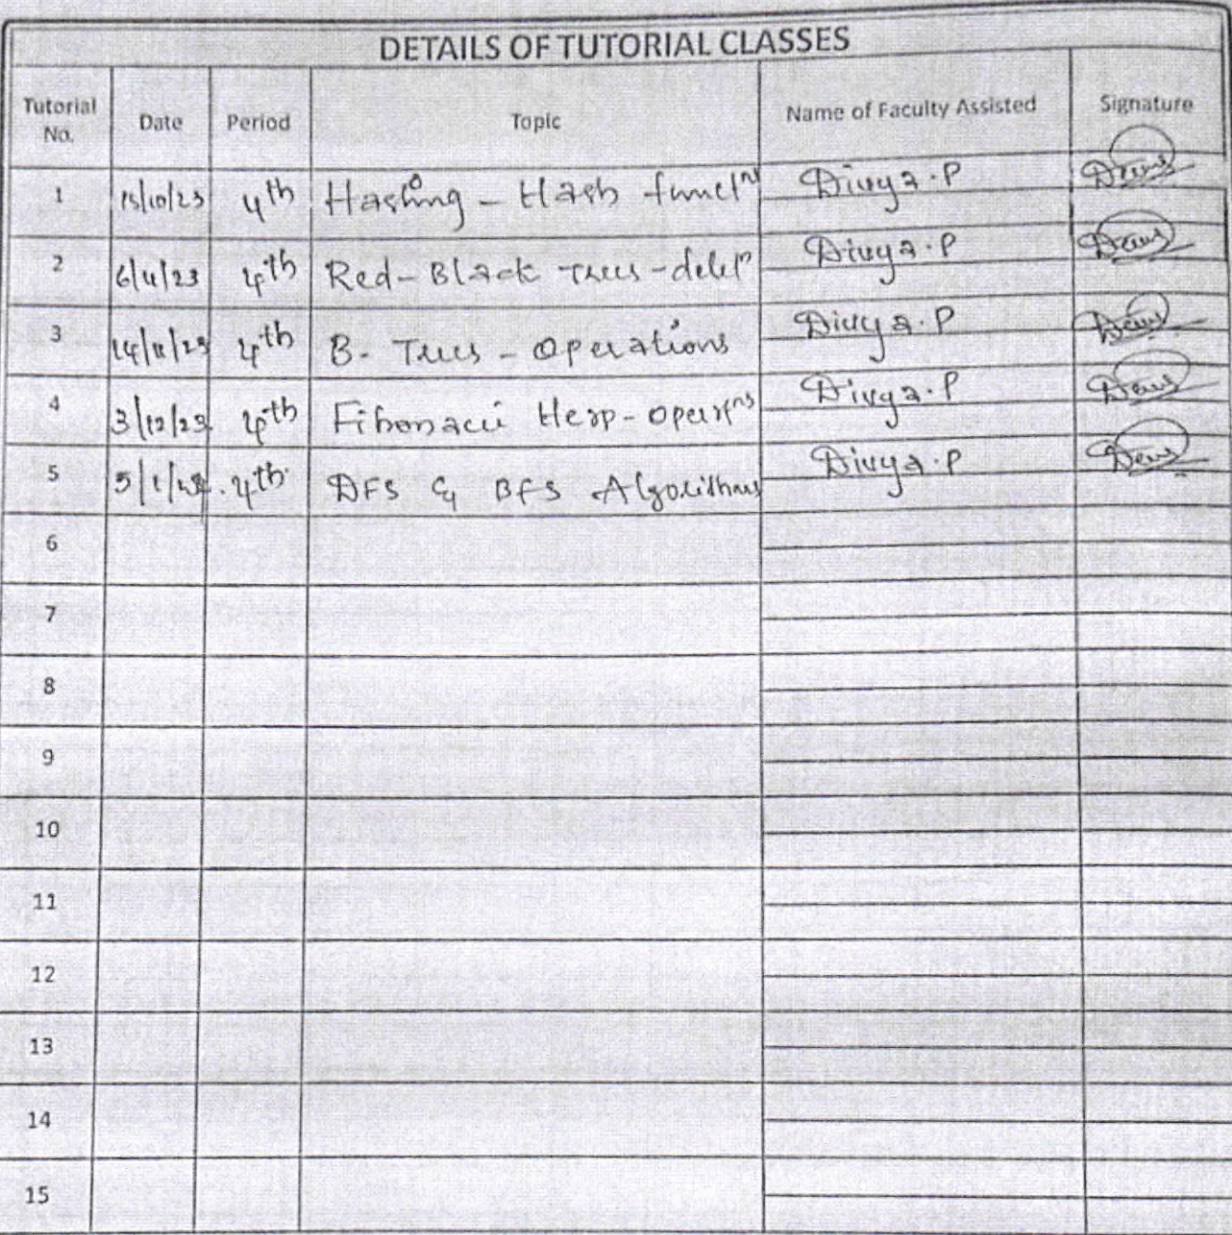 DETAILS OF TUTORIAL CLASSES
Tutorial No. Date Period Topic Name of Faculty Assisted Signature
1 15/10/23 4th Hashing - Hash functns Divya.P
2 6/11/23 4th Red-Black Trees - deletn Divya.P
3 14/11/23 4th B- Trees - Operations Divya.P
4 3/12/23 4th Fibonacci Heap - opertns Divya.P
5 4th DFS & BFS Algorithms Divya.P
6
7
8
9
10
11
12
13
14
15